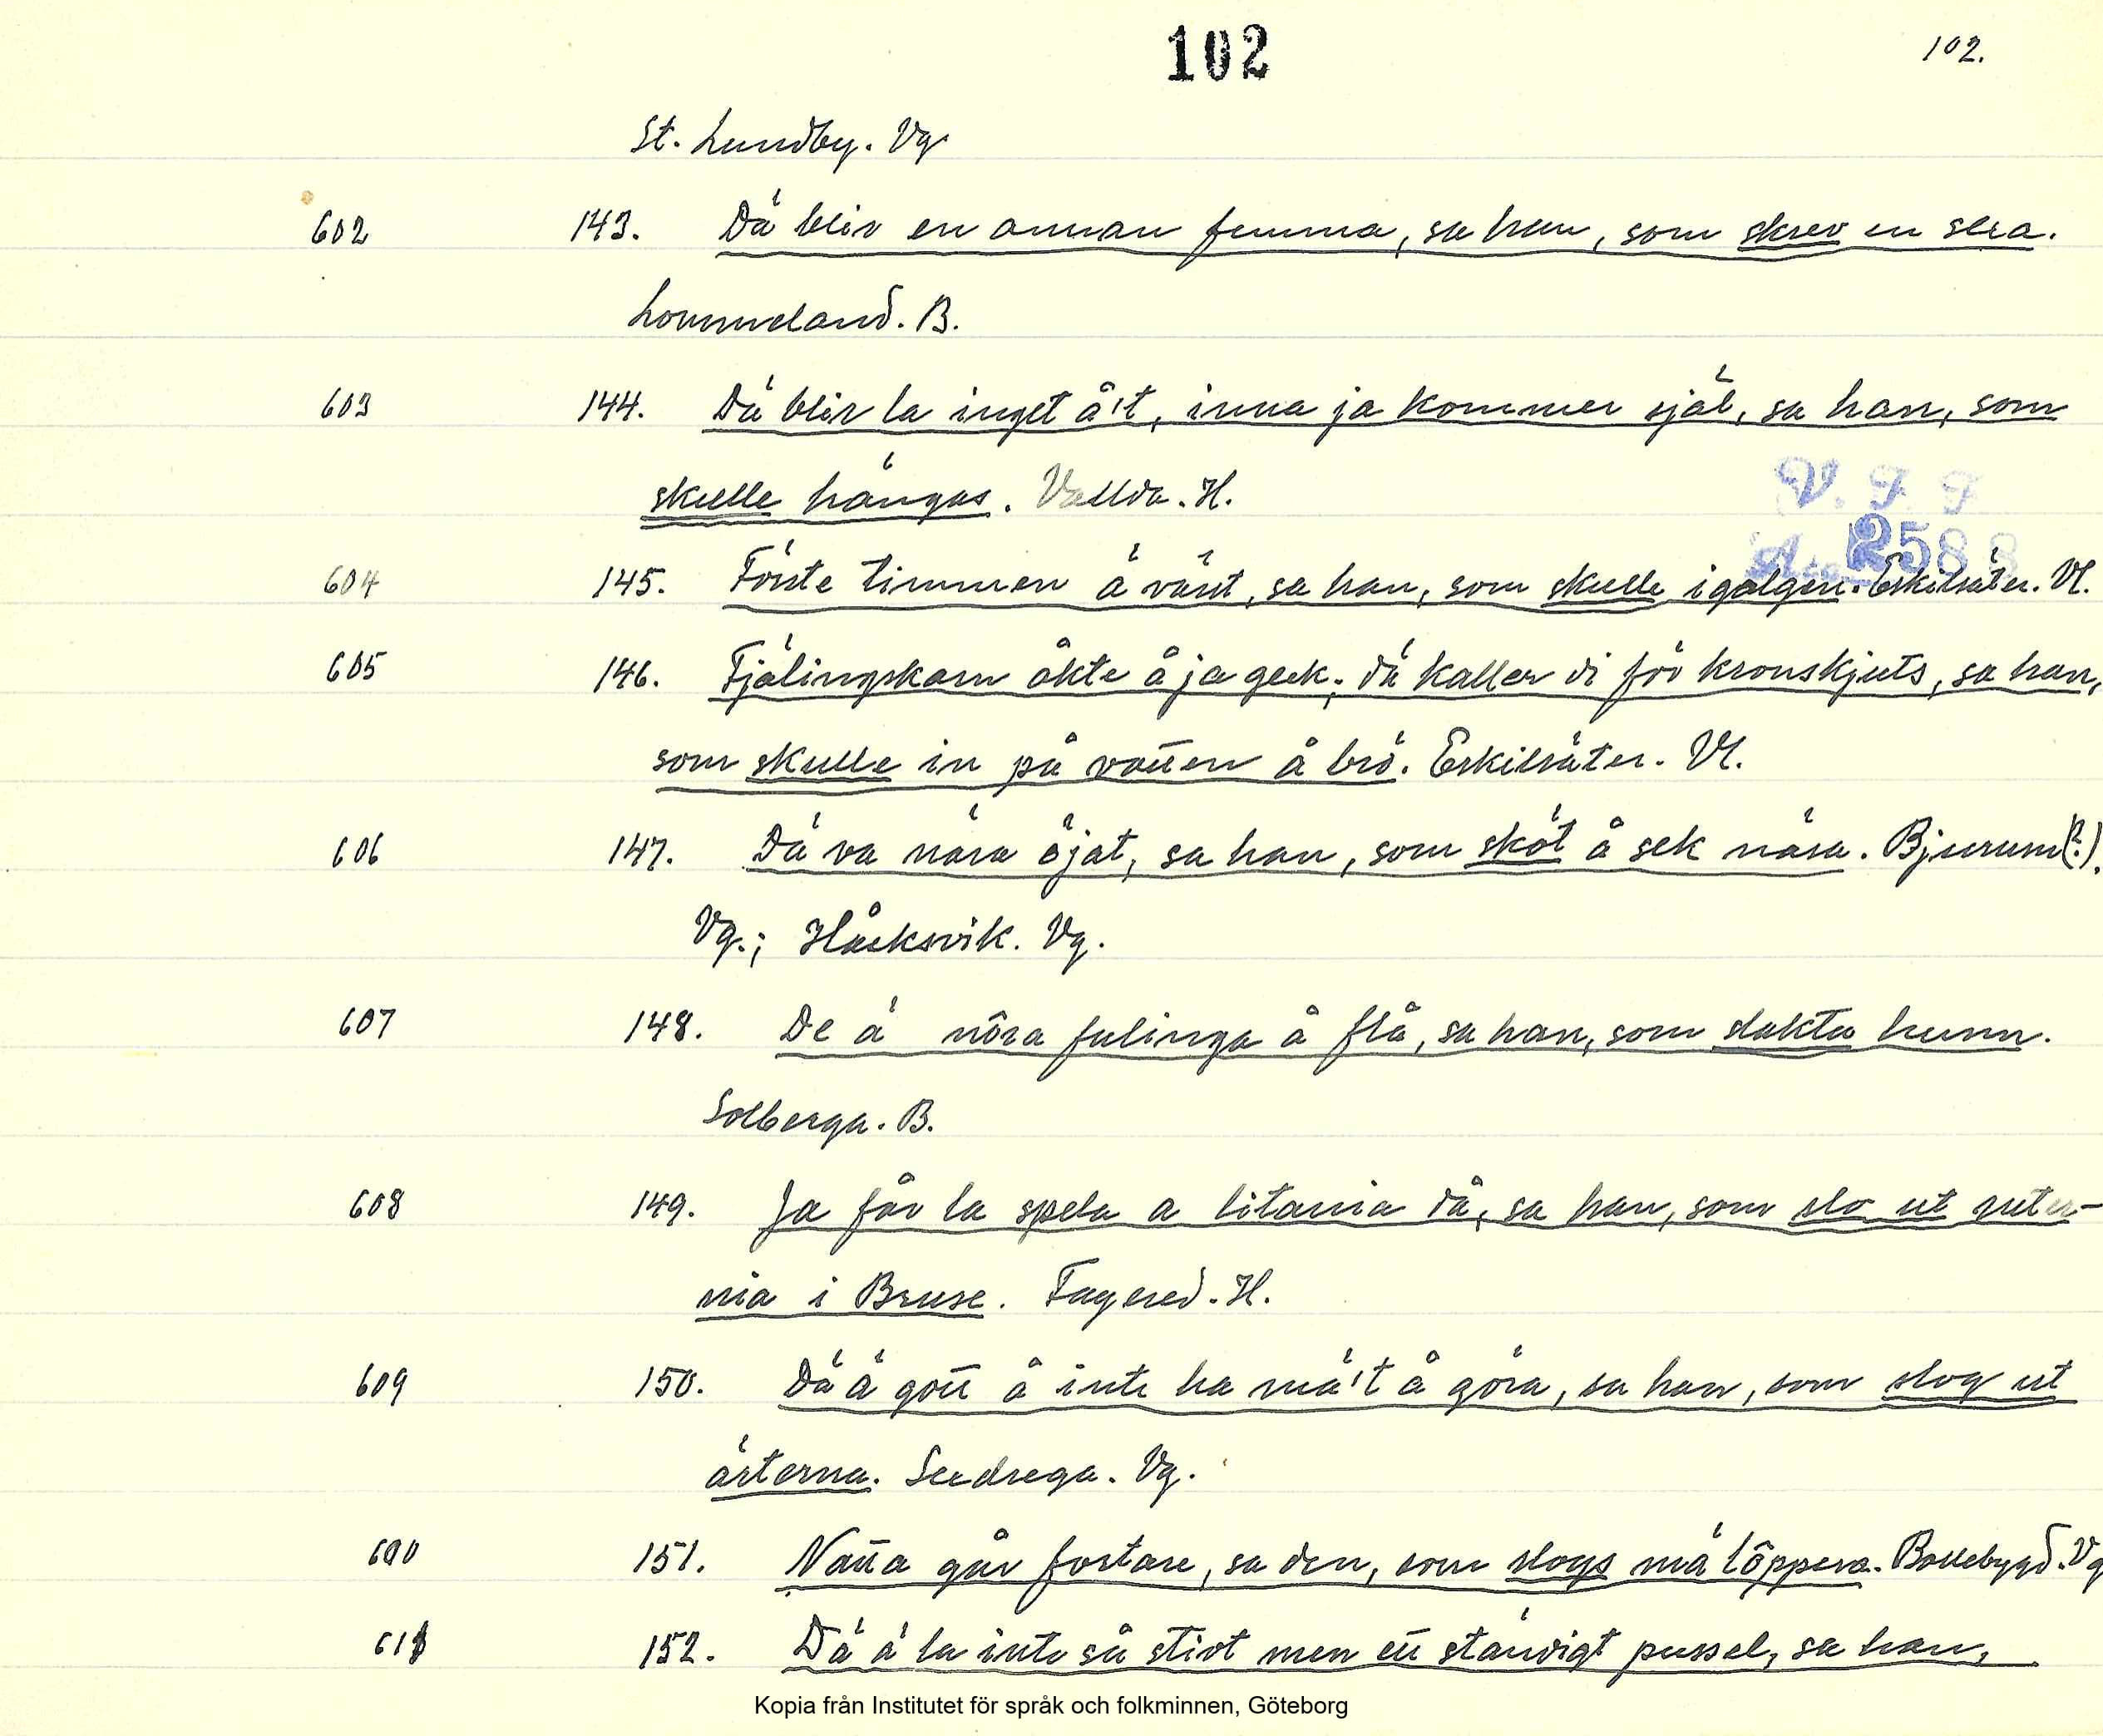 102
102.
St. Lundby. Vg
602 143. Dä blir en annan femma, sa han, som skrev en sexa.
Lommeland. B.
603 144. Dä blir la inget å't, inna ja kommer själ, sa han, som
skulle hängas. Vallda. H.
V. F. F
2588
604 145. Förste timmen ä värst, sa han, som skulle i galgen. Eskilsäter. Vl.
605 146. Fjälingskarn åkte å ja geck; dä kaller di för kronskjuts, sa han,
som skulle in på vatten å brö. Eskilsäter. Vl.
606 147. Dä va nära öjat, sa han, som sköt å sek näsa. Bjurum(?).
Vg.; Håcksvik. Vg.
607 148. De ä nôra fulinga å flå, sa han, som slakta hunn.
Solberga. B.
608 149. Ja får la spela a litania då, sa han, som slo ut guter-
nia i Bruse. Fagered. H.
609 150. Dä ä gott å inte ha mä't å göra, sa han, som slog ut
ärterna. Seedrega. Vg.
610 151. Natta går fortare, sa den, som slogs mä löppera. Bollebygd. Vg
611 152. Dä ä la inte så stivt men ett ständigt pussel, sa han,
Kopia från Institutet för språk och folkminnen, Göteborg